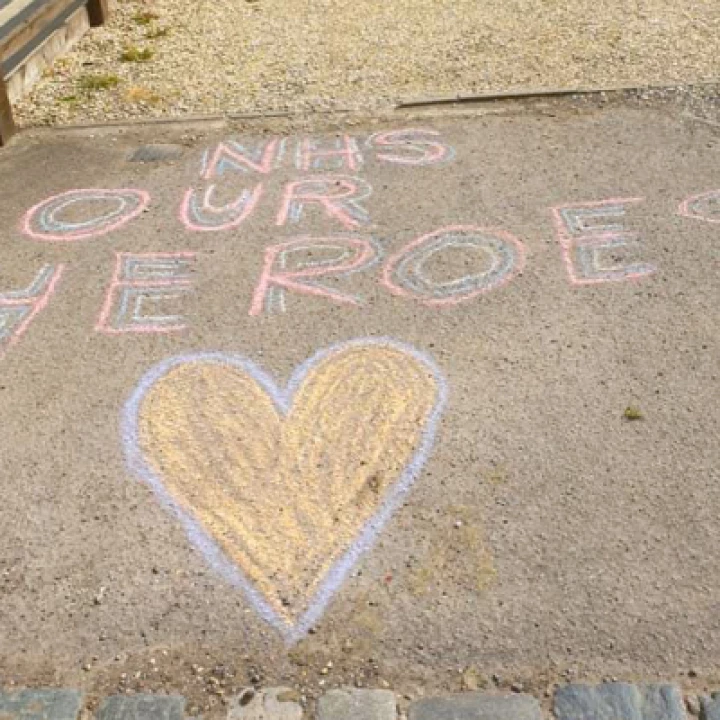 NHS
OUR
HEROES